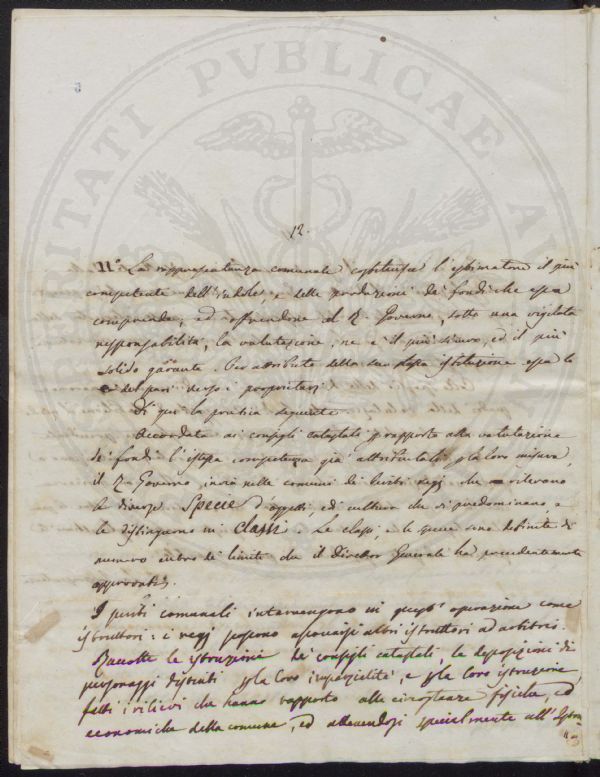 12.
11° La rappresentanza comunale costituisce l'estimatore il più
competente dell'indole, e delle produzioni de' fondi che essa
comprende, ed offrendone al R. Governo, sotto una vigilata
responsabilità, la valutazione, ne è il più sicuro, ed il più
solido garante. Per attributo della sua stessa istituzione essa lo
è del pari verso i proprietarj
Di qui la pratica seguente.
Accordata ai consigli catastali p rapporto alla valutazione
de' fondi l'istessa competenza già attribuitale p la loro misura,
il R. Governo invia nelle comuni de' Periti regj che rilevano
le diverse Specie d'aspetti, ed i cultura che vi predominano, e
le distinguono in Classi. Le classi, e le specie sono definite di
numero entro de' limiti che il Direttor Generale ha precedentemente
approvati.
I periti comunali intervengono in quest' operazione come
istruttori: i regj possono associarsi altri istruttori ad arbitrio.
Raccolte le istruzione de' consigli catastali, le deposizioni di
personaggi distinti p la loro imparzialità, e p la loro istruzione,
fatti i rilievi che hanno rapporto alle circostanze fisiche, ed
economiche della comune, ed attenendosi specialmente all'
VERITATI PVBLICAE